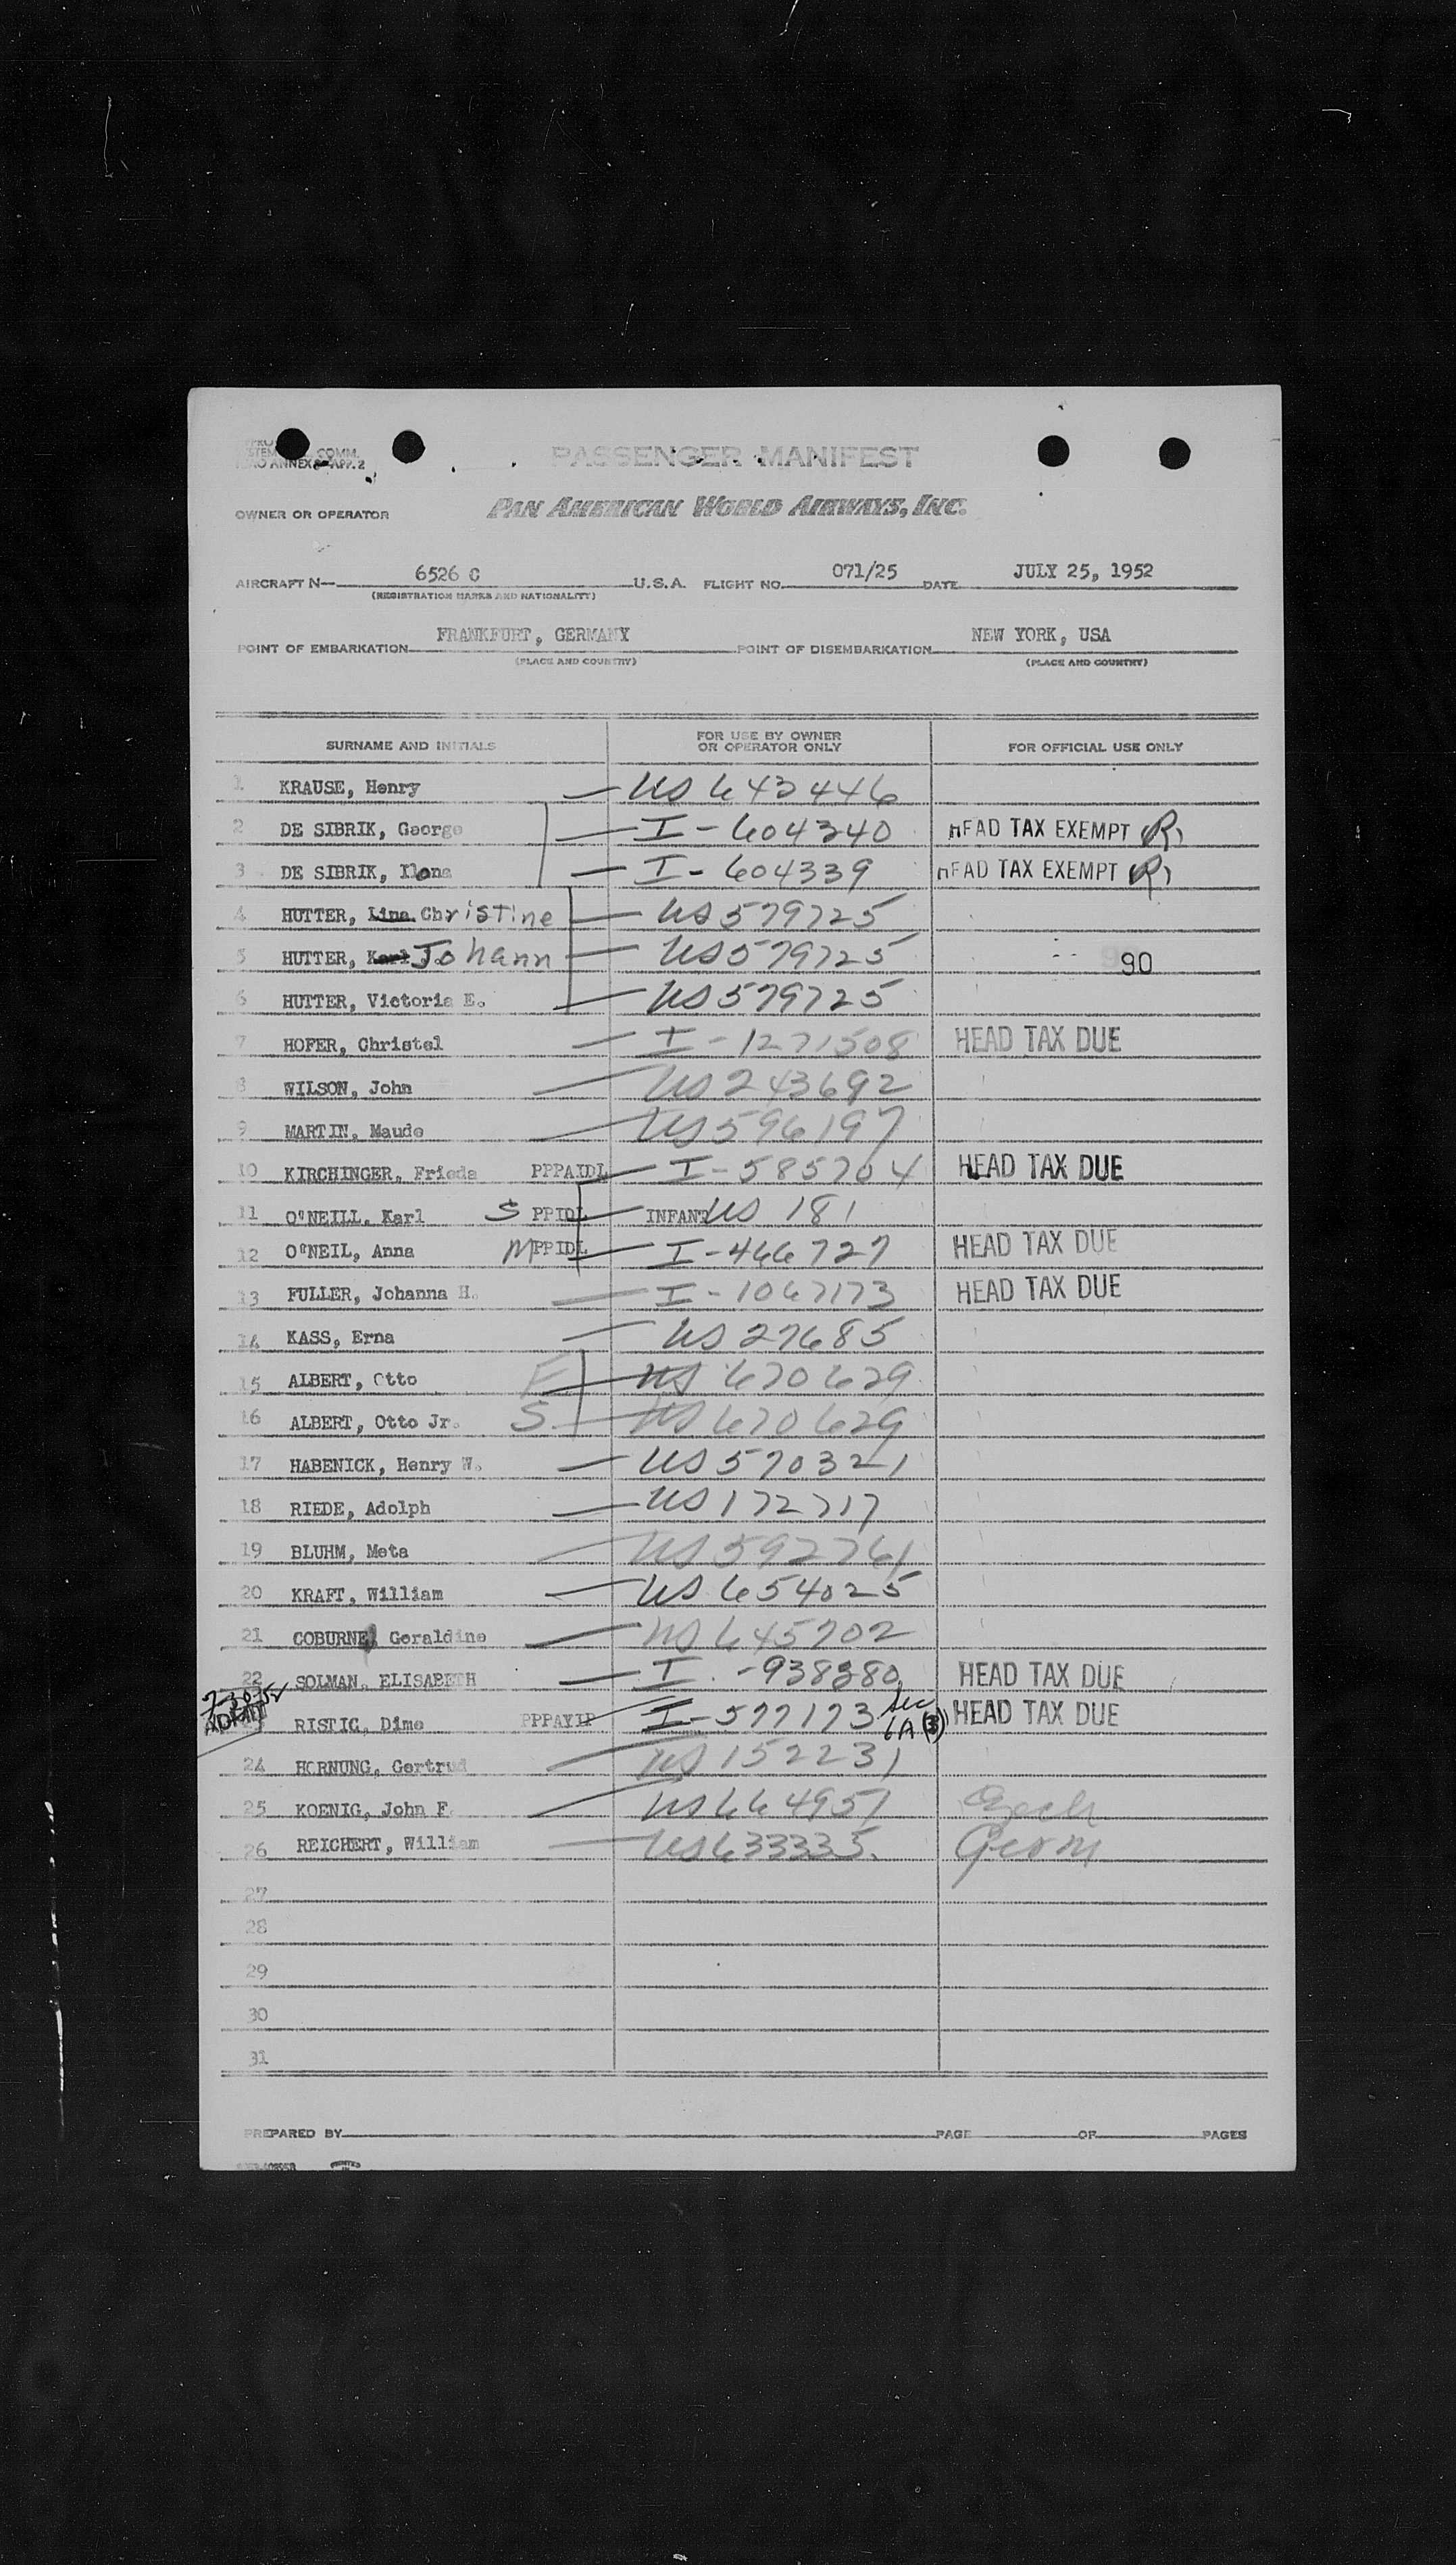 COMM.
ANNEX APP. 2
PASSENGER MANIFEST
OWNER OR OPERATOR PAN AMERICAN WORLD AIRWAYS, INC.
AIRCRAFT N— 6526 C U.S.A. FLIGHT NO. 071/25 DATE JULY 25, 1952
(REGISTRATION MARKS AND NATIONALITY)
POINT OF EMBARKATION FRANKFURT, GERMANY POINT OF DISEMBARKATION NEW YORK, USA
(PLACE AND COUNTRY) (PLACE AND COUNTRY)
SURNAME AND INITIALS FOR USE BY OWNER OR OPERATOR ONLY FOR OFFICIAL USE ONLY
1 KRAUSE, Henry — US 643446
2 DE SIBRIK, George — I-604340 HEAD TAX EXEMPT
3 DE SIBRIK, Ilona — I-604339 HEAD TAX EXEMPT
4 HUTTER, Lina Christine — US 579725
5 HUTTER, Karl Johann — US 579725 90
6 HUTTER, Victoria E. — US 579725
7 HOFER, Christel — I-1271508 HEAD TAX DUE
8 WILSON, John — US 243692
9 MARTIN, Maude — US 596197
10 KIRCHINGER, Frieda PPPAIDL — I-585704 HEAD TAX DUE
11 O'NEILL, Karl S PPIDL — INFANT US 181
12 O'NEIL, Anna M PPIDL — I-466727 HEAD TAX DUE
13 FULLER, Johanna H. — I-1067173 HEAD TAX DUE
14 KASS, Erna — US 27685
15 ALBERT, Otto F — US 670629
16 ALBERT, Otto Jr. S — US 670629
17 HABENICK, Henry W. — US 570321
18 RIEDE, Adolph — US 172717
19 BLUHM, Meta — US 592761
20 KRAFT, William — US 654025
21 COBURNE, Geraldine — US 645702
22 SOLMAN, ELISABETH — I-938380 HEAD TAX DUE
7-30-52
ADMIT RISTIC, Dime PPPAYIP — I-577173 Sec 6A (3) HEAD TAX DUE
24 HORNUNG, Gertrud — US 152231
25 KOENIG, John F. — US 664951 Czech
26 REICHERT, William — US 633335. Germ
27
28
29
30
31
PREPARED BY PAGE OF PAGES